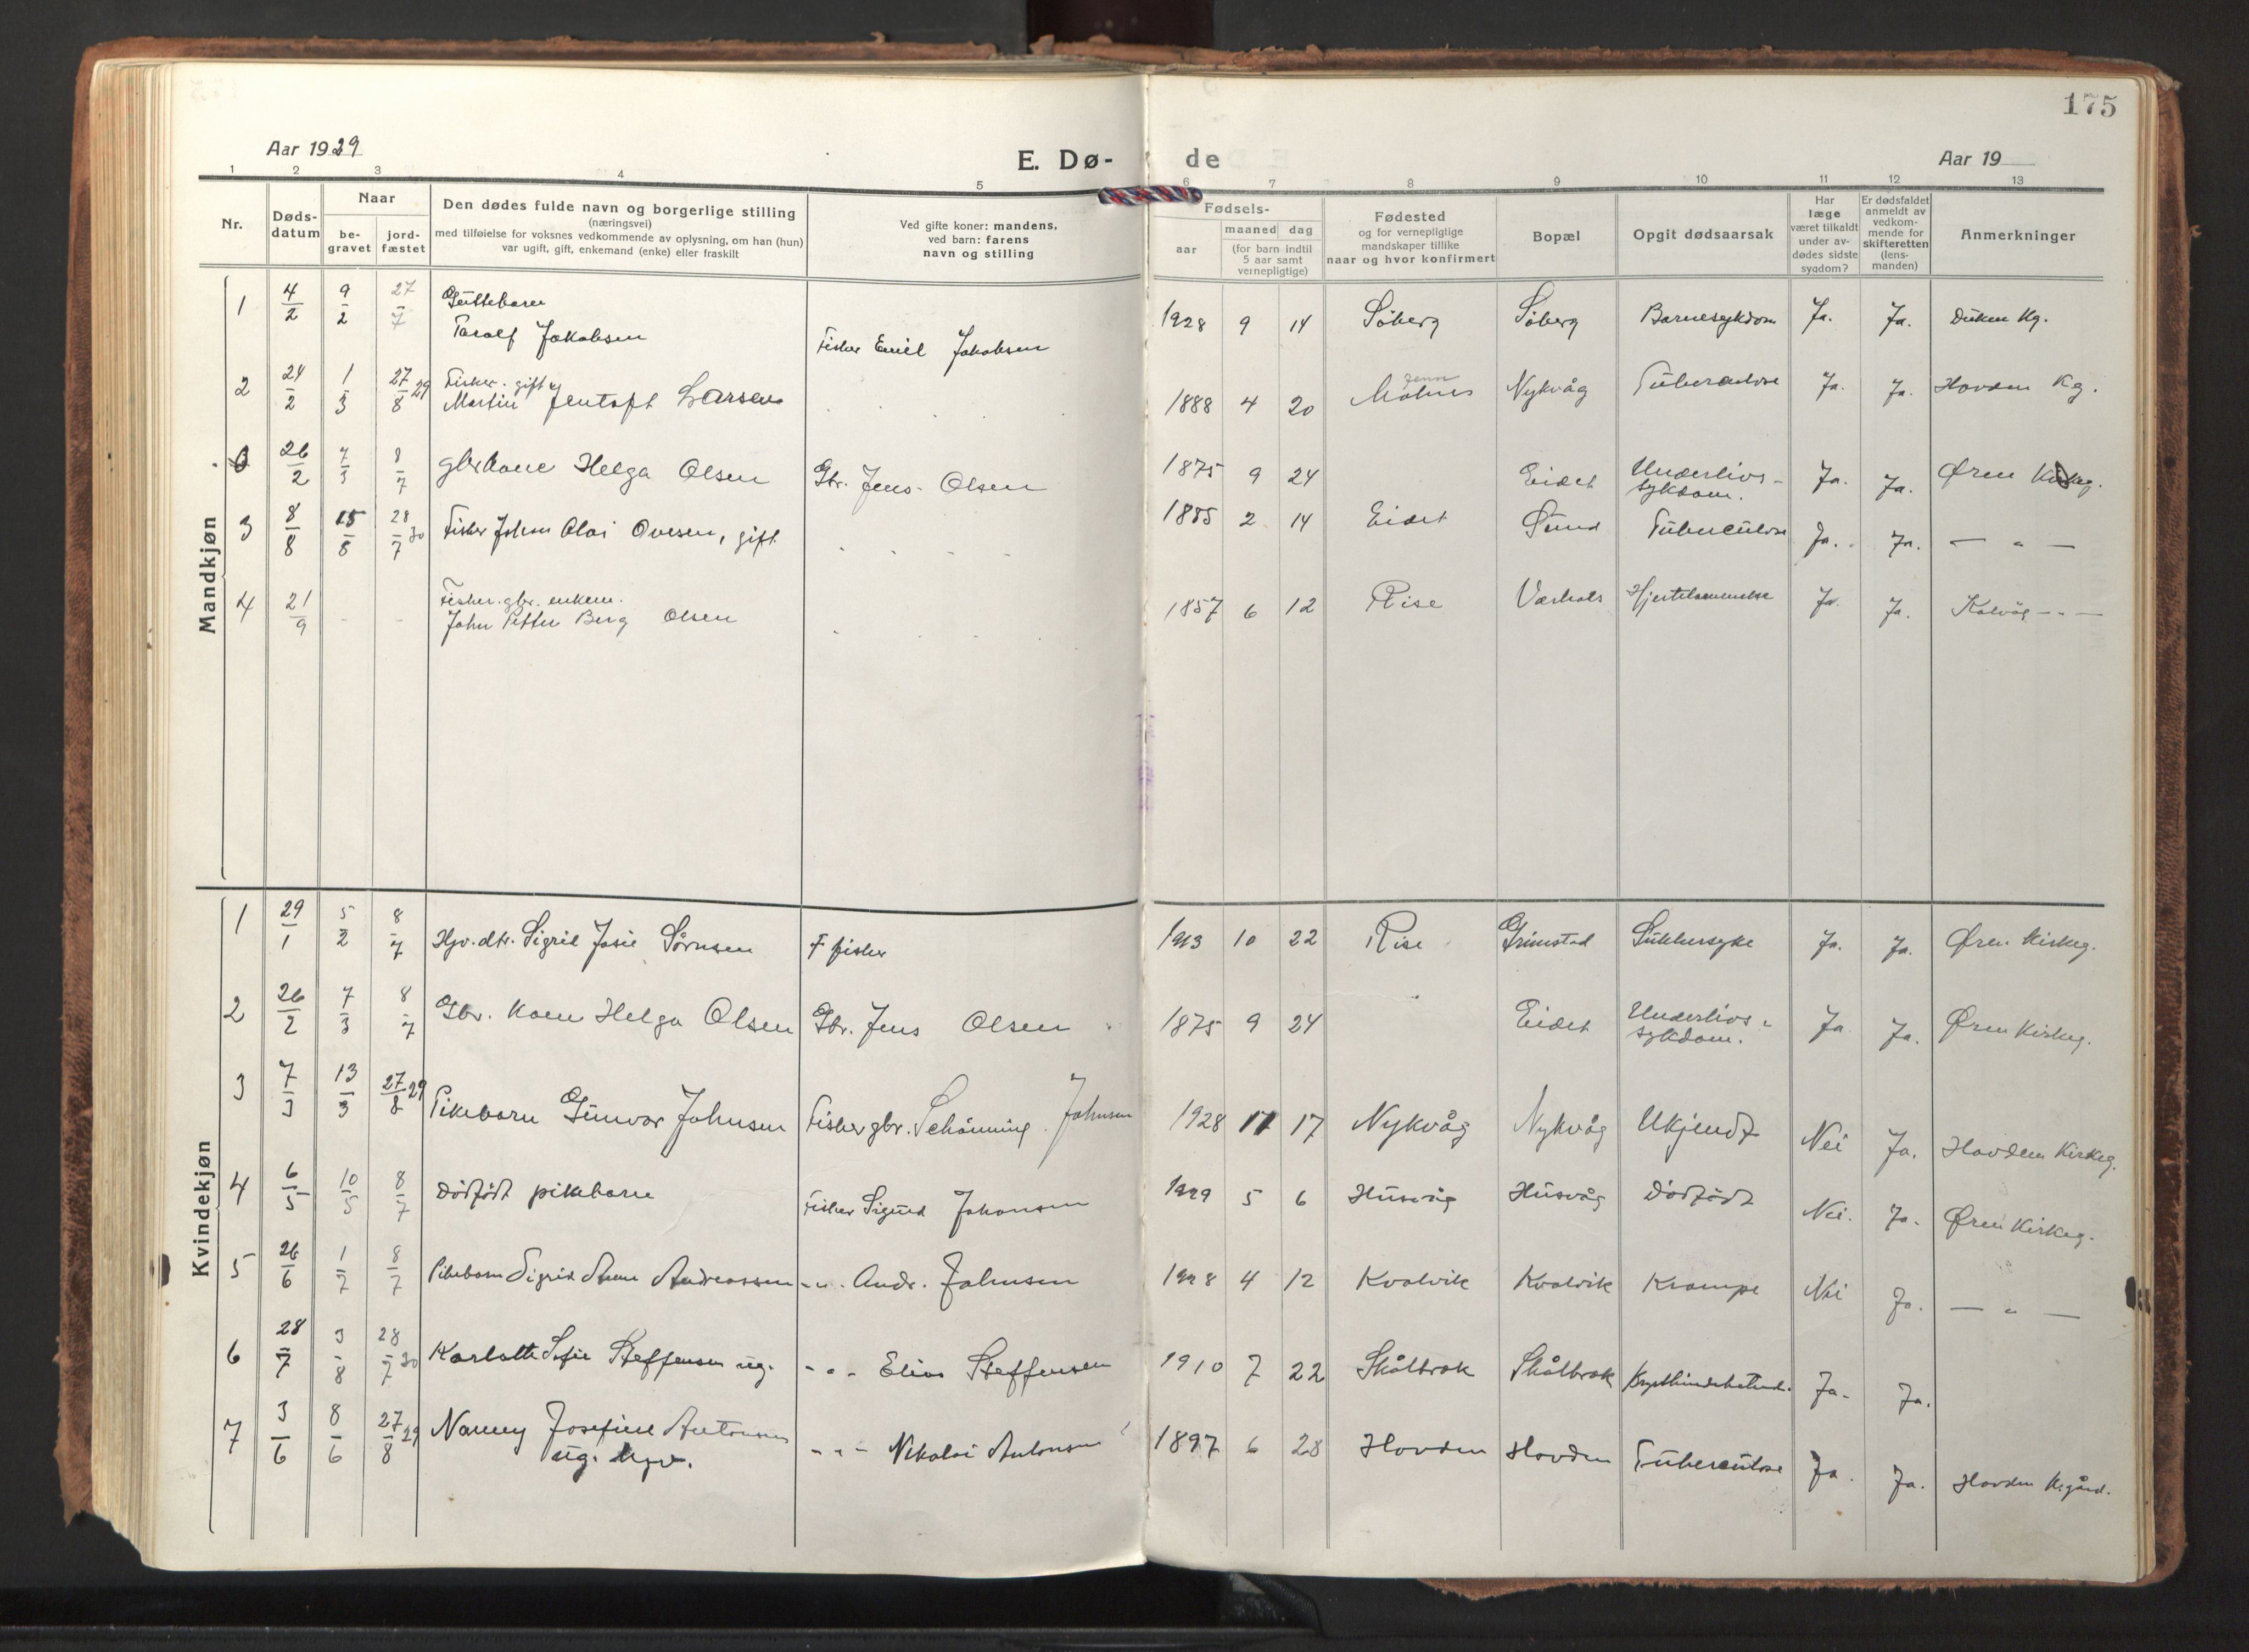 175
Aar 1929
E. Dø-
de
Aar 19
1 2 3 4 5 6 7 8 9 10 11 12 13
Nr.
Døds-
datum
Naar
be-
gravet
jord-
fæstet
Den dødes fulde navn og borgerlige stilling
(næringsvei)
med tilføielse for voksnes vedkommende av oplysning, om han (hun)
var ugift, gift, enkemand (enke) eller fraskilt
Ved gifte koner: mandens,
ved barn: farens
navn og stilling
Fødsels-
aar
maaned dag
(for barn indtil
5 aar samt
vernepligtige)
Fødested
og for vernepligtige
mandskaper tillike
naar og hvor konfirmert
Bopæl
Opgit dødsaarsak
Har
læge
været tilkaldt
under av-
dødes sidste
sygdom?
Er dødsfaldet
anmeldt av
vedkom-
mende for
skifteretten
(lens-
manden)
Anmerkninger
Mandkjøn
1 4/2 9/2 27/7 Guttebarn
Taralf Jakobsen Fisker Emil Jakobsen 1928 9 14 Søberg Søberg Barnesykdom Ja. Ja. Kg.
2 24/2 1/3 27/8 29 Fisker. gift
Martin Jentoft Larsen 1888 4 20 Nykvåg Tuberculose Ja. Ja. Hovden Kg.
26/2 7/3 8/7 gbrkone Helga Olsen Gbr. Jens Olsen 1875 9 24 Eidet Underlivs-
sykdom. Ja. Ja. Øren
3 8/8 15/8 28/7 30 Fisker Johan Olai Ovesen, gift 1885 2 14 Eidet Sund Tuberculose Ja. Ja. — " —
4 21/9 - - Fisker. gbr. enkem.
John Petter Berg Olsen 1857 6 12 Rise Ja. Ja.
Kvindekjøn
1 29/1 5/2 8/7 Hjv. dtr. Sigrid Josie Sørnsen F fisker 1913 10 22 Rise Grimstad Sukkersyke Ja. Ja. Øren Kirkeg.
2 26/2 7/3 8/7 Gbr. kone Helga Olsen Gbr. Jens Olsen 1875 9 24 Eidet Underlivs-
sykdom. Ja Ja. Øren Kirkeg.
3 7/3 13/3 27/8 29 Pikebarn Gunvor Johnsen Fisker gbr. Schönning Johnsen 1928 11 17 Nykvåg Nykvåg Ukjendt Nei Ja. Hovden Kirkeg.
4 6/5 10/5 8/7 Dødfødt pikebarn Fisker Sigurd Johansen 1929 5 6 Husvåg Husvåg Dødfødt Nei. Ja. Øren Kirkeg.
5 26/6 1/7 8/7 Pikebarn Sigrid Anne Andreassen - " - Andr. Johnsen 1928 4 12 Kvalvik Kvalvik Krampe Nei Ja. — " —
6 28/7 3/8 28/7 30 Karlotte Sofie Steffensen ug. - " - Elias Steffensen 1910 7 22 Skålbrek Skålbrek Ja. Ja.
7 3/6 8/6 27/8 29 Nanny Josefine Antonsen
ug. hjv. - " - Nikolai Antonsen 1897 6 28 Hovden Hovden Tuberculose Ja. Ja. Hovden K.gård.